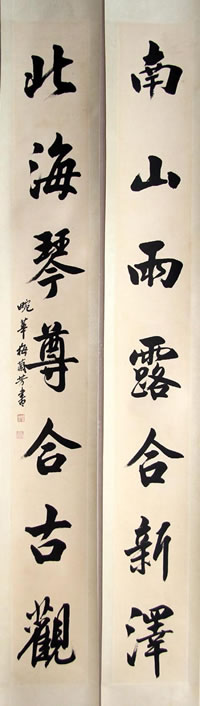 南山雨露含新澤
北海琴尊合古觀
畹華梅蘭芳書